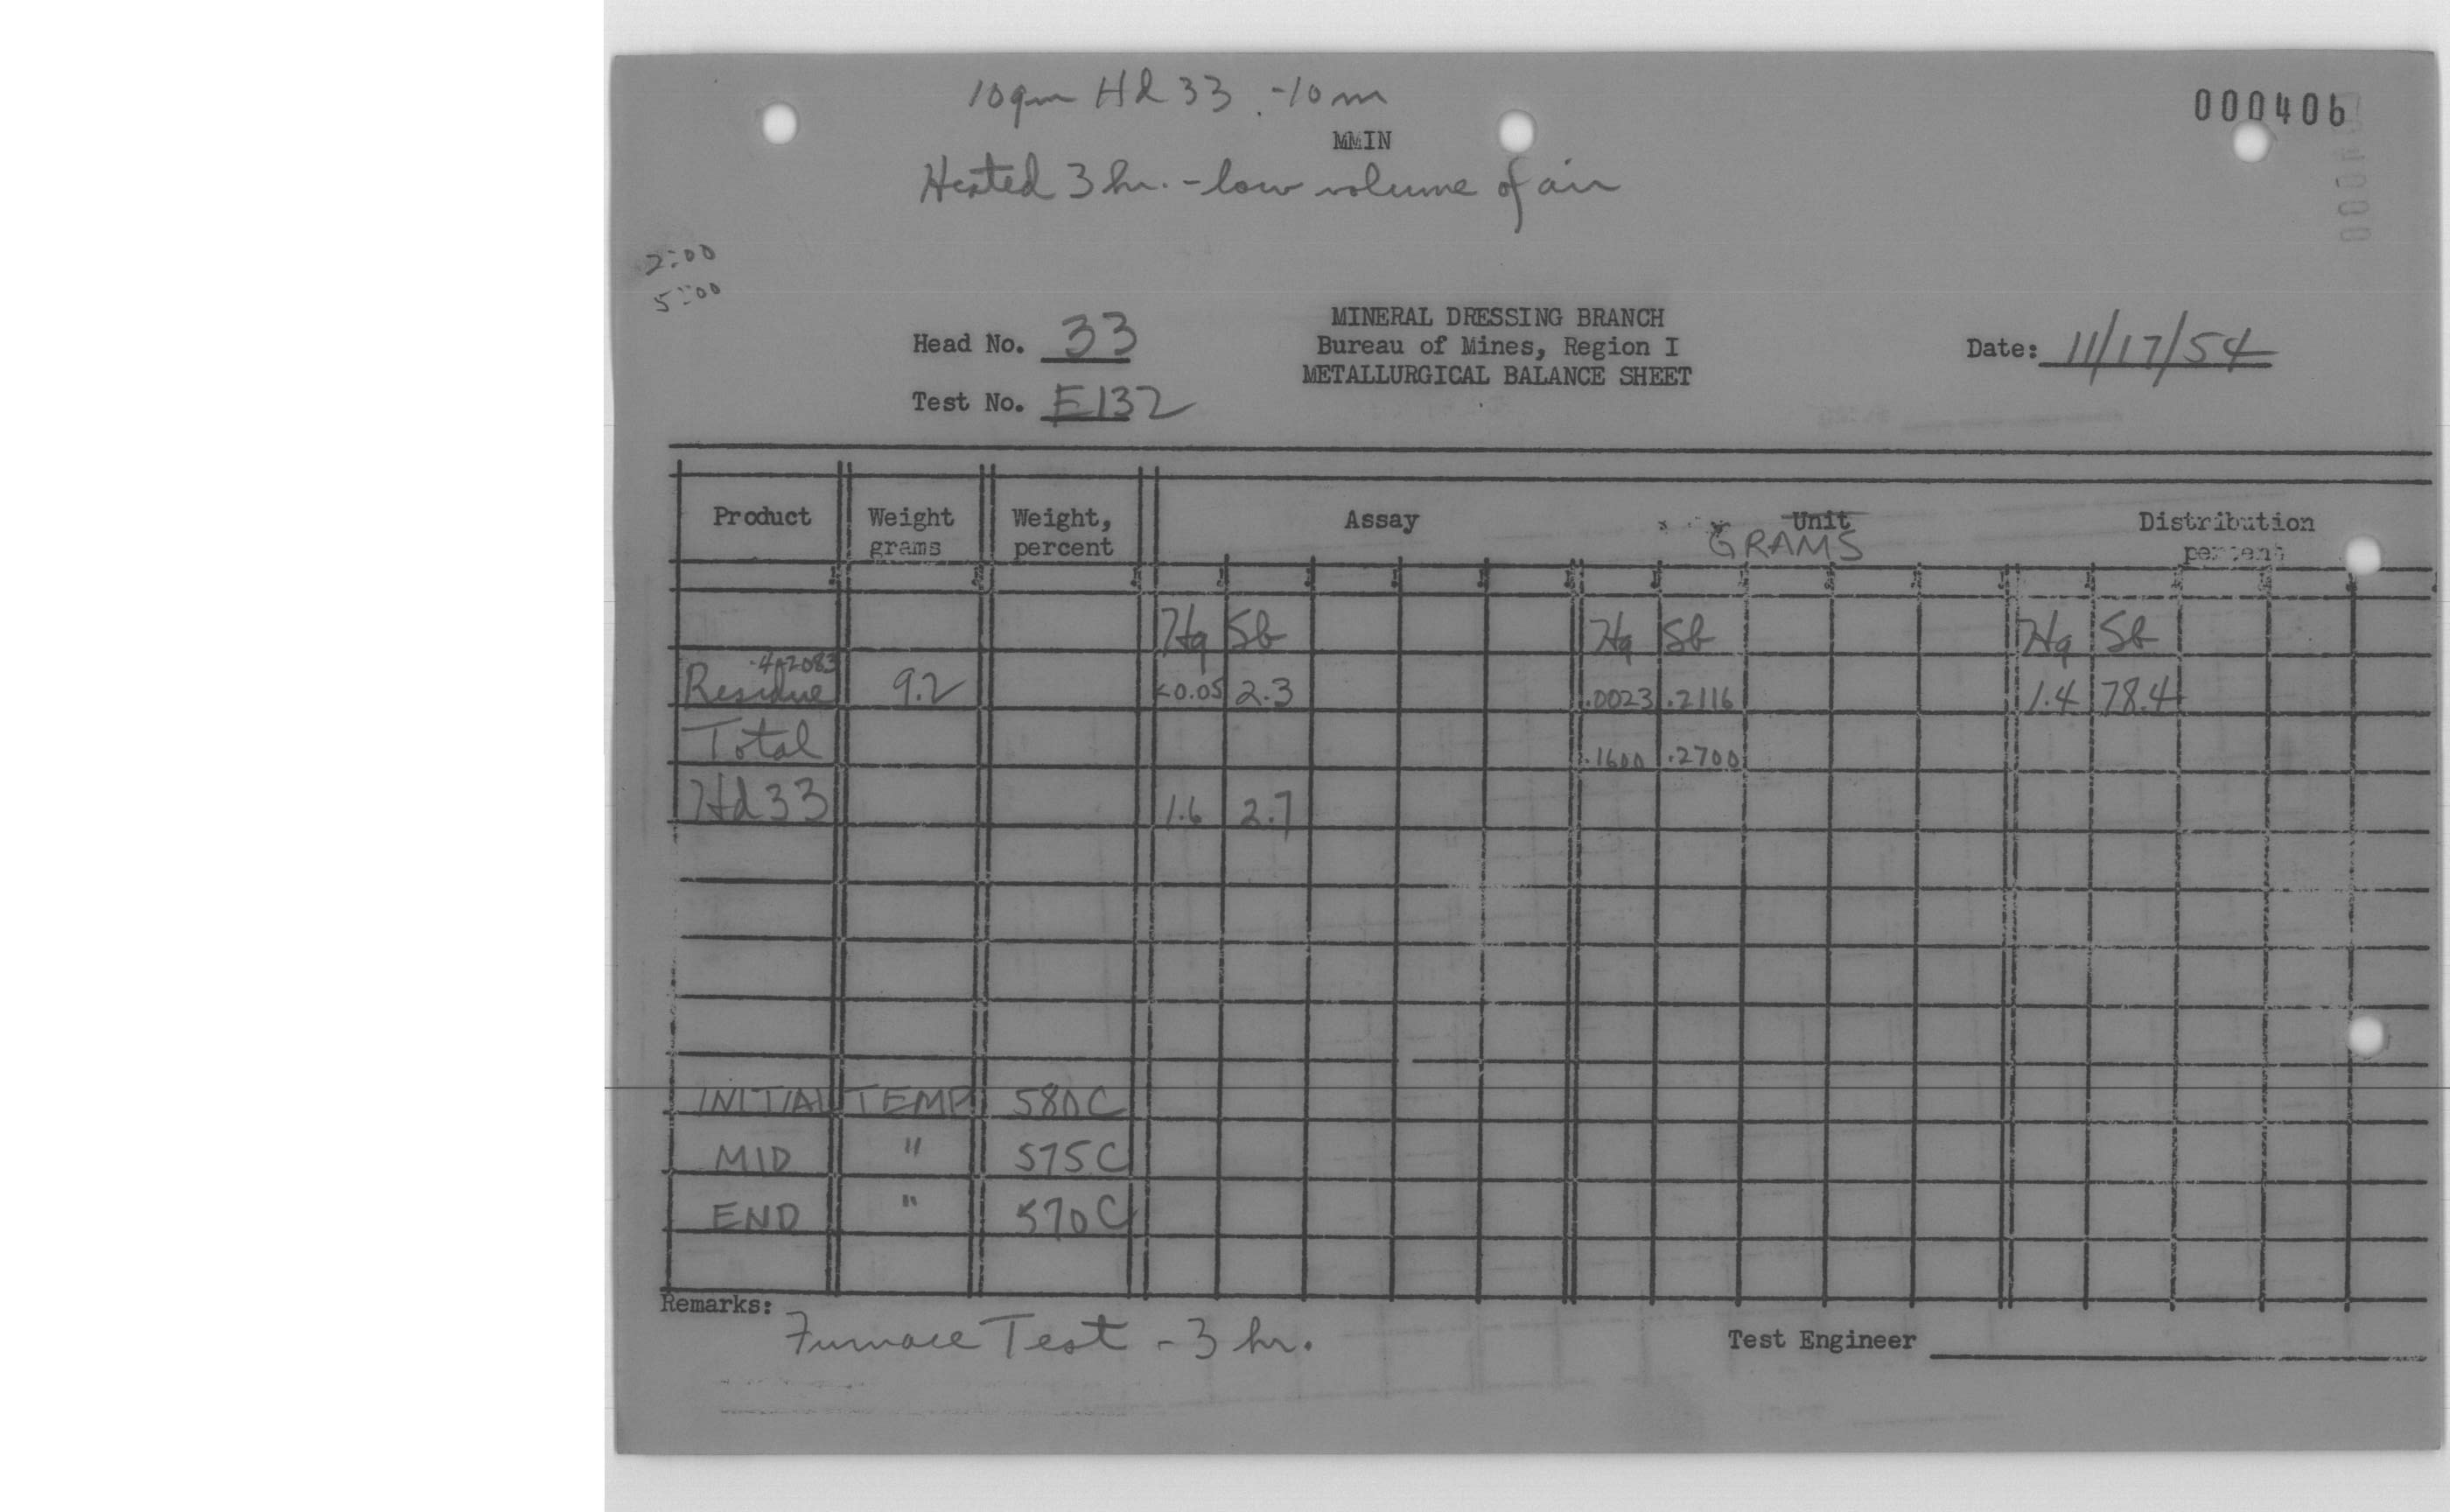 10gm Hd 33 -10m
000406
MMIN
Heated 3 hr. - low volume of air
2:00
5:00
MINERAL DRESSING BRANCH
Head No. 33
Bureau of Mines, Region I
Date: 11/17/54
METALLURGICAL BALANCE SHEET
Test No. E132
Product Weight grams Weight, percent Assay Unit GRAMS Distribution percent
Hg Sb Hg Sb Hg Sb
Residue 9.2 <0.05 2.3 .0023 .2116 1.4 78.4
Total .1600 .2700
Hd 33 1.6 2.7
INITIAL TEMP 580C
MID " 575C
END " 570C
Remarks:
Furnace Test - 3 hr.
Test Engineer